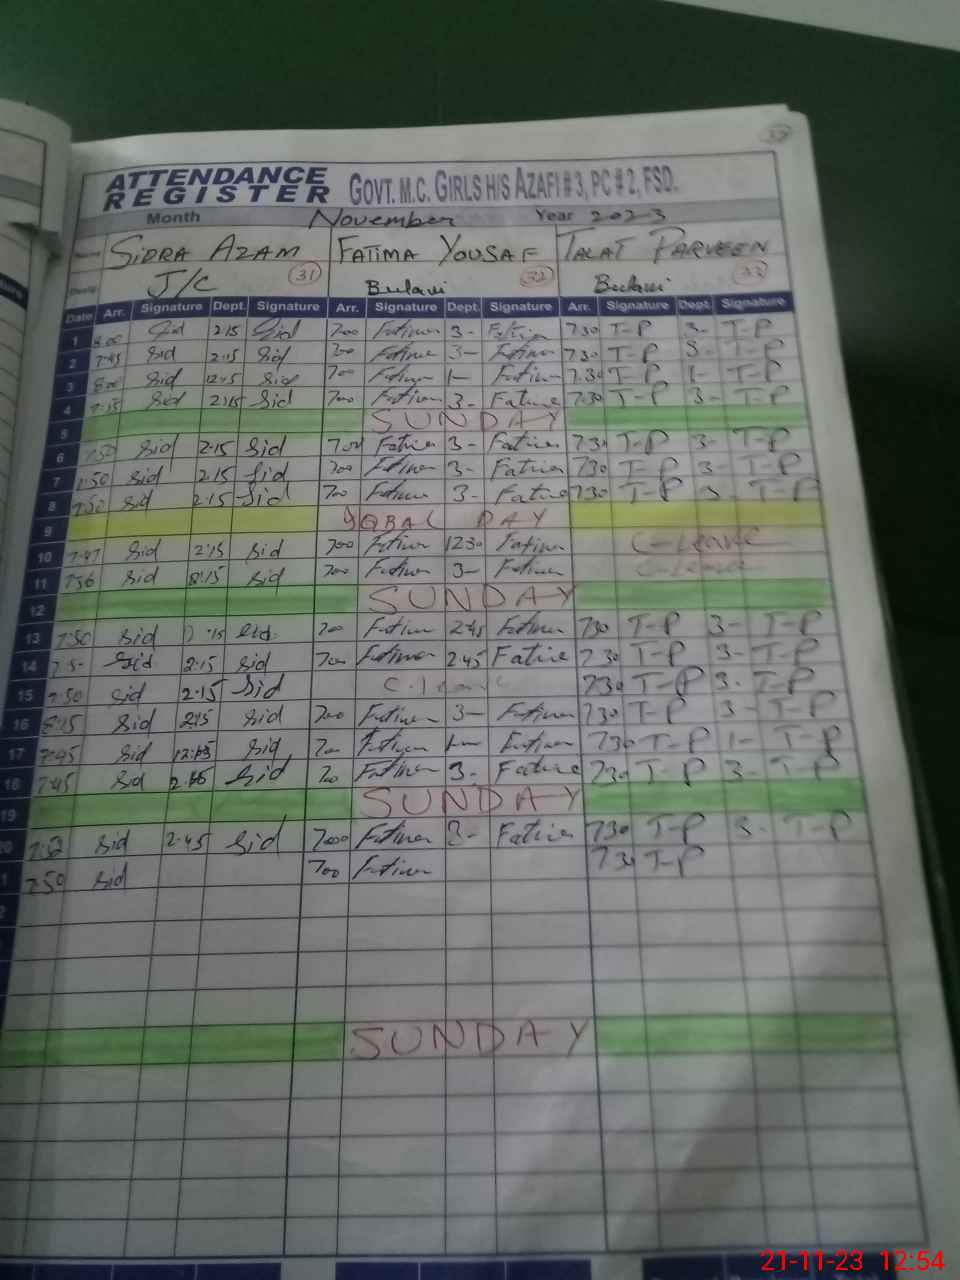 37
ATTENDANCE REGISTER GOVT. M.C. GIRLS H/S AZAFI # 3, PC # 2, FSD.
Month November Year 2023
Name SIDRA AZAM FATIMA YOUSAF TALAT PARVEEN
J/C 31 32 33
Date Arr. Signature Dept. Signature Arr. Signature Dept. Signature Arr. Signature Dept. Signature
1 8:00 Sid 2:15 Sid 700 Fatima 3- Fatima 730 T-P 3- T-P
2 7:45 Sid 2:15 Sid 700 Fatima 3- Fatima 730 T-P 3- T-P
3 8:00 Sid 12:15 Sid 700 Fatima 1- Fatima 730 T-P 1- T-P
4 7:55 Sid 2:15 Sid 700 Fatima 3- Fatima 730 T-P 3- T-P
5 SUNDAY
6 7:50 Sid 2:15 Sid 700 Fatima 3- Fatima 730 T-P 3- T-P
7 7:50 Sid 2:15 Sid 700 Fatima 3- Fatima 730 T-P 3- T-P
8 7:50 Sid 2:15 Sid 700 Fatima 3- Fatima 730 T-P 3- T-P
9 IQBAL DAY
10 7:47 Sid 2:15 Sid 700 Fatima 1230 Fatima C-Leave
11 7:56 Sid 2:15 Sid 700 Fatima 3- Fatima C-Leave
12 SUNDAY
13 7:50 Sid 2:15 Sid 700 Fatima 2:45 Fatima 730 T-P 3- T-P
14 Sid 2:15 Sid 700 Fatima 2:45 Fatima 730 T-P 3- T-P
15 7:50 Sid 2:15 Sid C.leave 730 T-P 3- T-P
16 8:15 Sid 2:15 Sid 700 Fatima 3- Fatima 730 T-P 3- T-P
17 7:45 Sid Sid 700 Fatima 1- Fatima 730 T-P 1- T-P
18 7:45 Sid Sid 700 Fatima 3- Fatima 730 T-P 3- T-P
19 SUNDAY
20 7:52 Sid 2:45 Sid 700 Fatima 3- Fatima 730 T-P 3- T-P
7:50 Sid 700 Fatima 730 T-P
SUNDAY
21-11-23 12:54